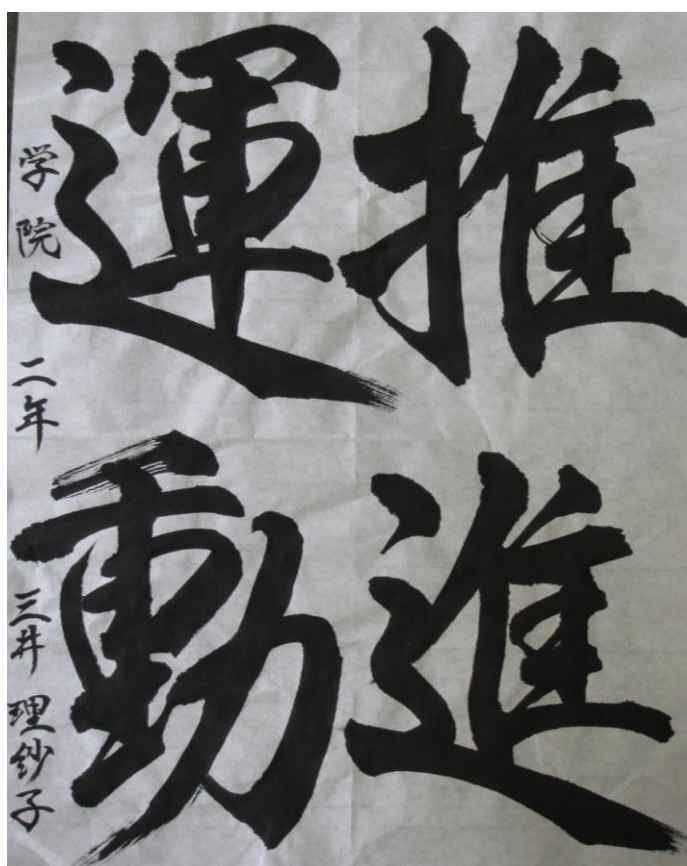 推進
運動
学院 二年 三井 理紗子